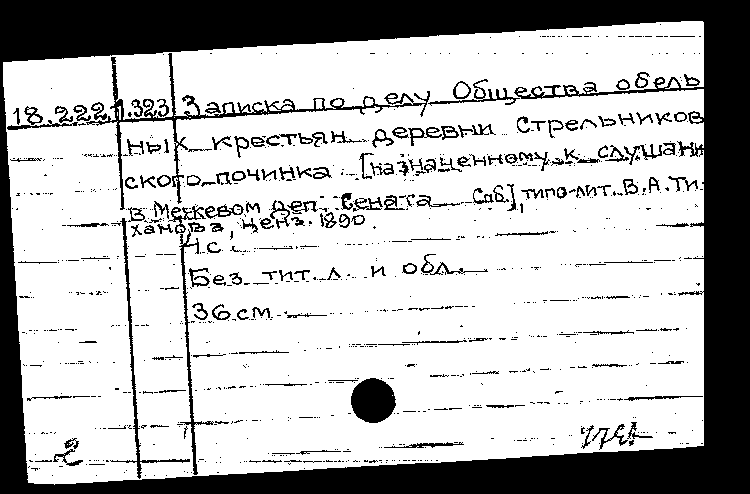 18.222.1.323 Записка по делу Общества обель
ных крестьян деревни Стрельников
ского починка [назначенному к слушани
в Межевом деп. Сената Спб.], типо-лит. В.А.Ти-
ханова, ценз. 1890.
4 с.
Без тит. л. и обл.
36 см
2